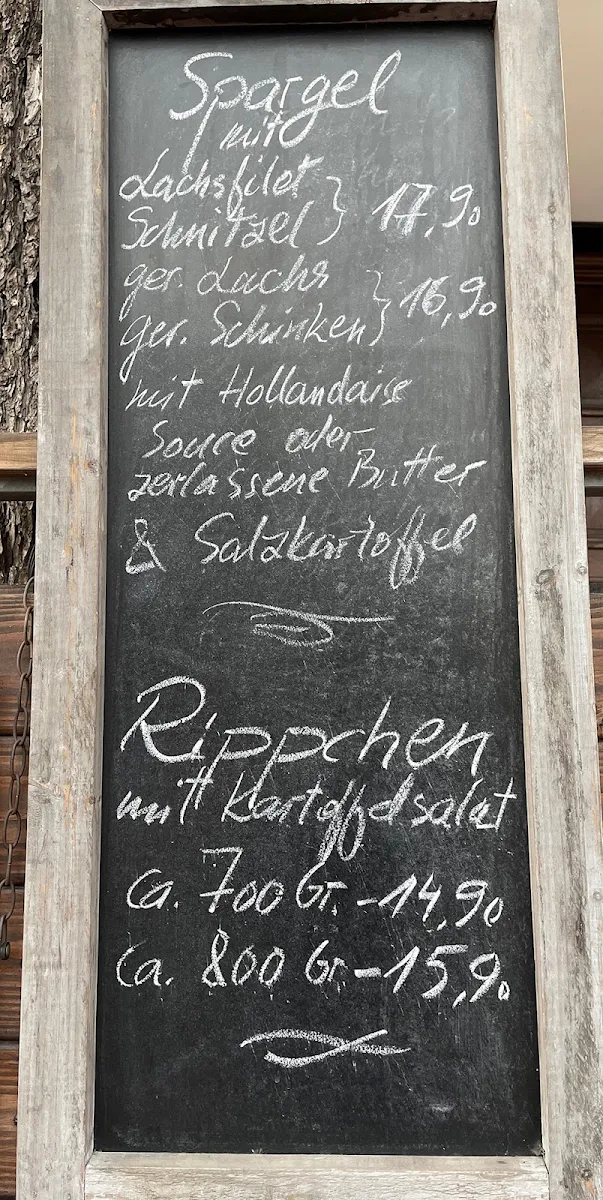 Spargel
mit
Lachsfilet
Schnitzel } 17,90
ger. Lachs
ger. Schinken } 16,90
mit Hollandaise
Souce oder
zerlassene Butter
& Salzkartoffel
Rippchen
mit Kartoffelsalat
ca. 700 Gr. - 14,90
ca. 800 Gr - 15,90